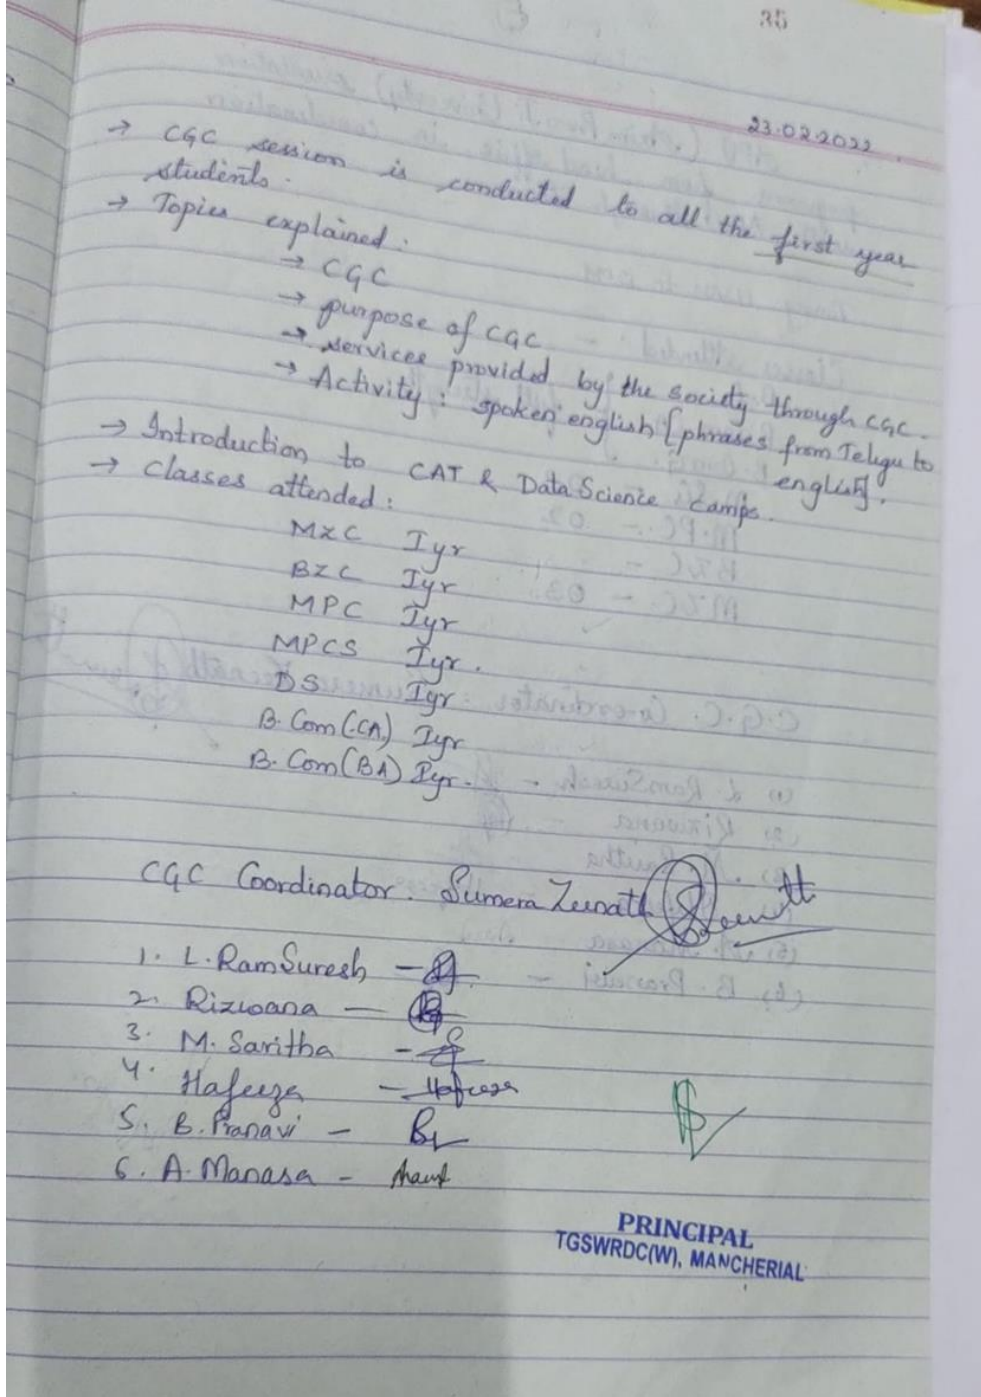 35
23.02.2022.
→ CGC session is conducted to all the first year
students.
→ Topics explained:
→ CGC
→ purpose of CGC
→ services provided by the society through CGC.
→ Activity: spoken english [phrases from Telugu to
english].
→ Introduction to CAT & Data Science camps.
→ Classes attended:
MZC Iyr
BZC Iyr
MPC Iyr
MPCS Iyr.
DS Iyr
B.Com(CA) Iyr
B.Com(BA) Iyr.
CGC Coordinator. Sumera Zeenath
1. L. RamSuresh –
2. Rizwana –
3. M. Saritha –
4. Hafeeza – Hafeeza
5. B. Pranavi –
6. A. Manasa –
PRINCIPAL
TGSWRDC(W), MANCHERIAL